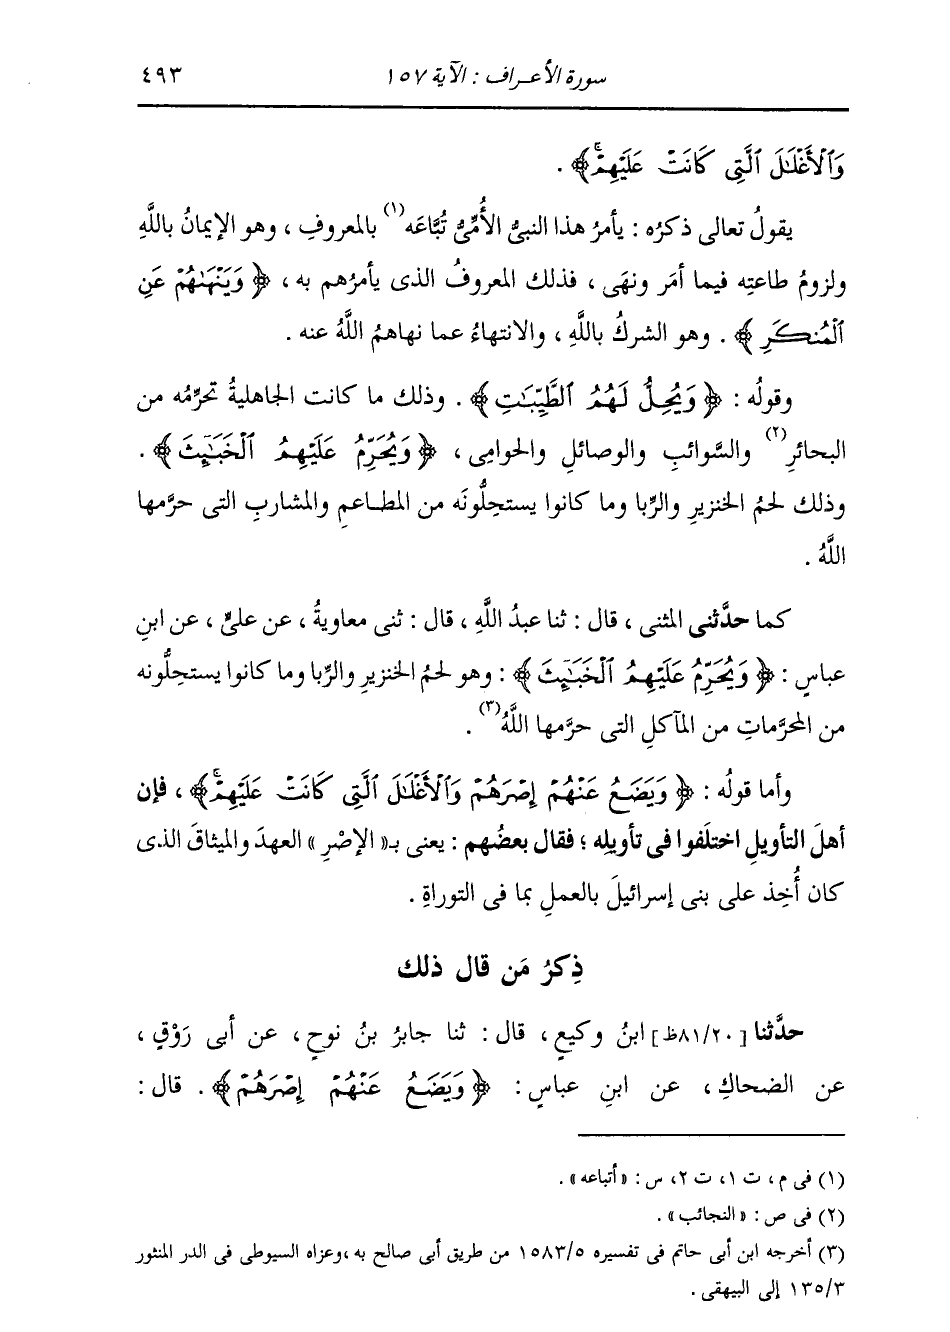 سورة الأعراف : الآية ١٥٧ ٤٩٣
وَٱلۡأَغۡلَٰلَ ٱلَّتِى كَانَتۡ عَلَيۡهِمۡۚ﴾ .
يقولُ تعالى ذكرُه : يأمرُ هذا النبىُّ الأُمِّىُّ تُبَّاعَه(١) بالمعروفِ ، وهو الإيمانُ باللَّهِ
ولزومُ طاعتِه فيما أمَر ونهَى ، فذلك المعروفُ الذى يأمرُهم به ، ﴿ وَيَنۡهَىٰهُمۡ عَنِ
ٱلۡمُنكَرِ ﴾ . وهو الشركُ باللَّهِ ، والانتهاءُ عما نهاهمُ اللَّهُ عنه .
وقولُه : ﴿ وَيُحِلُّ لَهُمُ ٱلطَّيِّبَٰتِ ﴾ . وذلك ما كانت الجاهليةُ تحرِّمُه من
البحائرِ(٢) والسَّوائبِ والوصائلِ والحوامى ، ﴿ وَيُحَرِّمُ عَلَيۡهِمُ ٱلۡخَبَٰٓئِثَ ﴾ .
وذلك لحمُ الخنزيرِ والرِّبا وما كانوا يستحِلُّونَه من المطاعمِ والمشاربِ التى حرَّمها
اللَّهُ .
كما حدَّثنى المثنى ، قال : ثنا عبدُ اللَّهِ ، قال : ثنى معاويةُ ، عن علىٍّ ، عن ابنِ
عباسٍ : ﴿ وَيُحَرِّمُ عَلَيۡهِمُ ٱلۡخَبَٰٓئِثَ ﴾ : وهو لحمُ الخنزيرِ والرِّبا وما كانوا يستحِلُّونه
من المحرَّماتِ من المآكلِ التى حرَّمها اللَّهُ(٣) .
وأما قولُه : ﴿ وَيَضَعُ عَنۡهُمۡ إِصۡرَهُمۡ وَٱلۡأَغۡلَٰلَ ٱلَّتِى كَانَتۡ عَلَيۡهِمۡۚ ﴾ ، فإن
أهلَ التأويلِ اختلَفوا فى تأويلِه ؛ فقال بعضُهم : يعنى بـ« الإصْرِ » العهدَ والميثاقَ الذى
كان أُخِذ على بنى إسرائيلَ بالعملِ بما فى التوراةِ .
ذِكرُ مَن قال ذلك
حدَّثنا [٨١/٢٠ظ] ابنُ وكيعٍ ، قال : ثنا جابرُ بنُ نوحٍ ، عن أبى رَوْقٍ ،
عن الضحاكِ ، عن ابنِ عباسٍ : ﴿ وَيَضَعُ عَنۡهُمۡ إِصۡرَهُمۡ ﴾ . قال :
(١) فى م ، ت ١، ت ٢، س : « أتباعه » .
(٢) فى ص : « النجائب » .
(٣) أخرجه ابن أبى حاتم فى تفسيره ١٥٨٣/٥ من طريق أبى صالح به ، وعزاه السيوطى فى الدر المنثور
١٣٥/٣ إلى البيهقى .